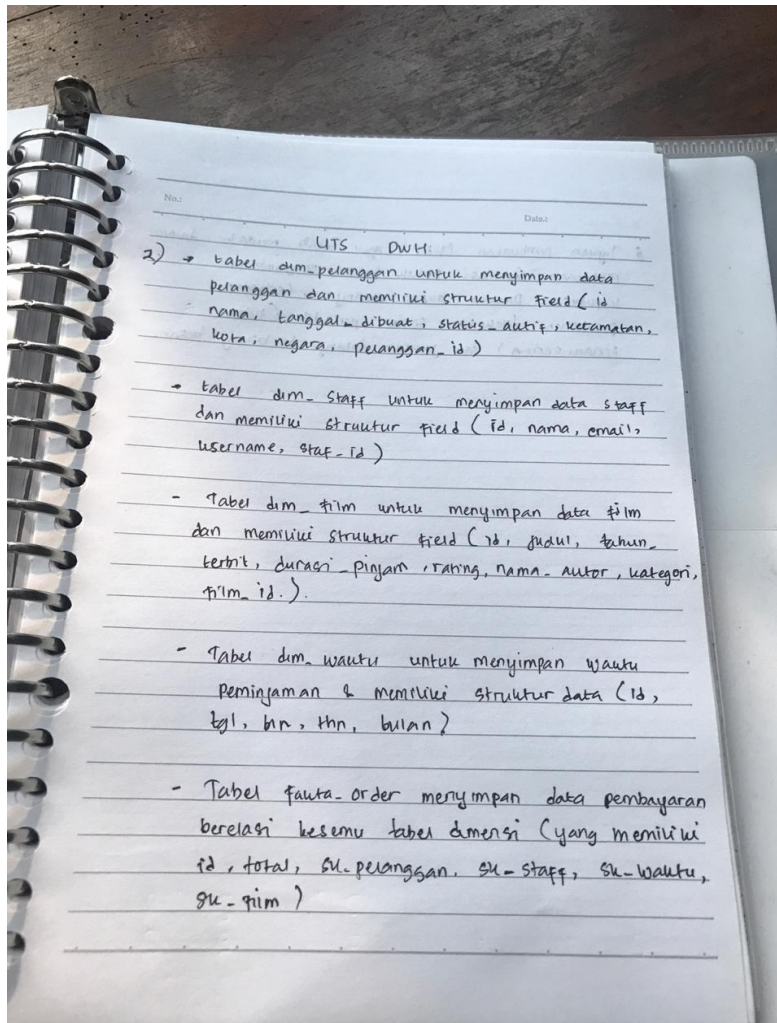 No.:
Date.:
UTS DWH
2) → tabel dim-pelanggan untuk menyimpan data
pelanggan dan memiliki struktur field ( id
nama, tanggal_dibuat, status_aktif, kecamatan,
kota, negara, pelanggan_id )
- tabel dim_staff untuk menyimpan data staff
dan memiliki struktur field ( id, nama, email,
username, staf_id )
- Tabel dim_film untuk menyimpan data film
dan memiliki struktur field ( id, judul, tahun_
terbit, durasi_pinjam, rating, nama_autor, kategori,
film_id. ).
- Tabel dim_waktu untuk menyimpan waktu
peminjaman & memiliki struktur data ( id,
tgl, bln, thn, bulan )
- Tabel fakta_order menyimpan data pembayaran
berelasi kesemu tabel dimensi ( yang memiliki
id, total, sk_pelanggan. sk_staff, sk_waktu,
sk_film )